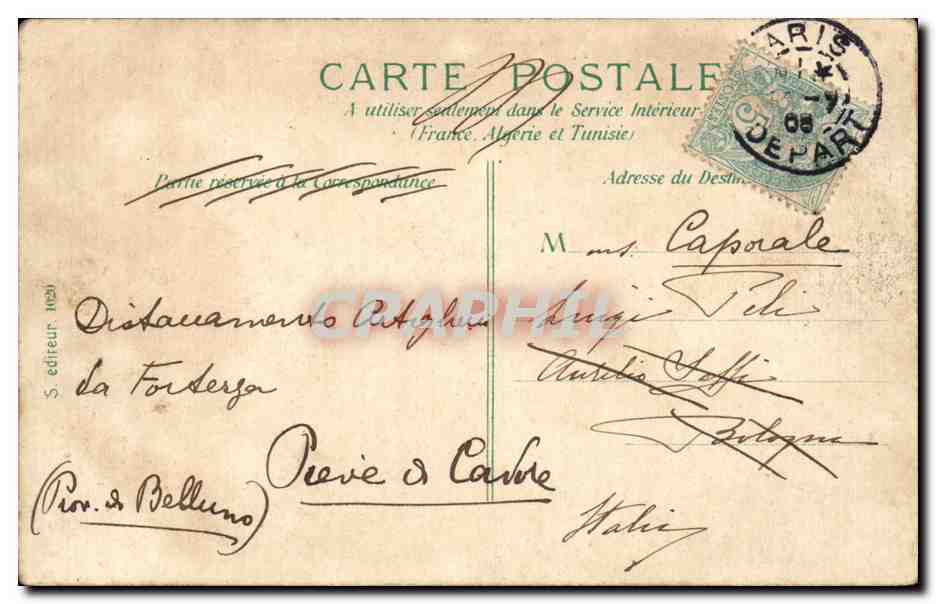 CARTE POSTALE
A utiliser seulement dans le Service Intérieur
(France, Algérie et Tunisie)
PARIS
08
DEPART
5
Partie réservée à la Correspondance
Adresse du Desti
M ons. Caporale
Luigi
Aurelio Saffi
Bologna
Italia
Distaccamento Artiglieria
La Fortezza
Pieve di Cadore
(Prov. di Belluno)
S. editeur 1020
CRAPHIL